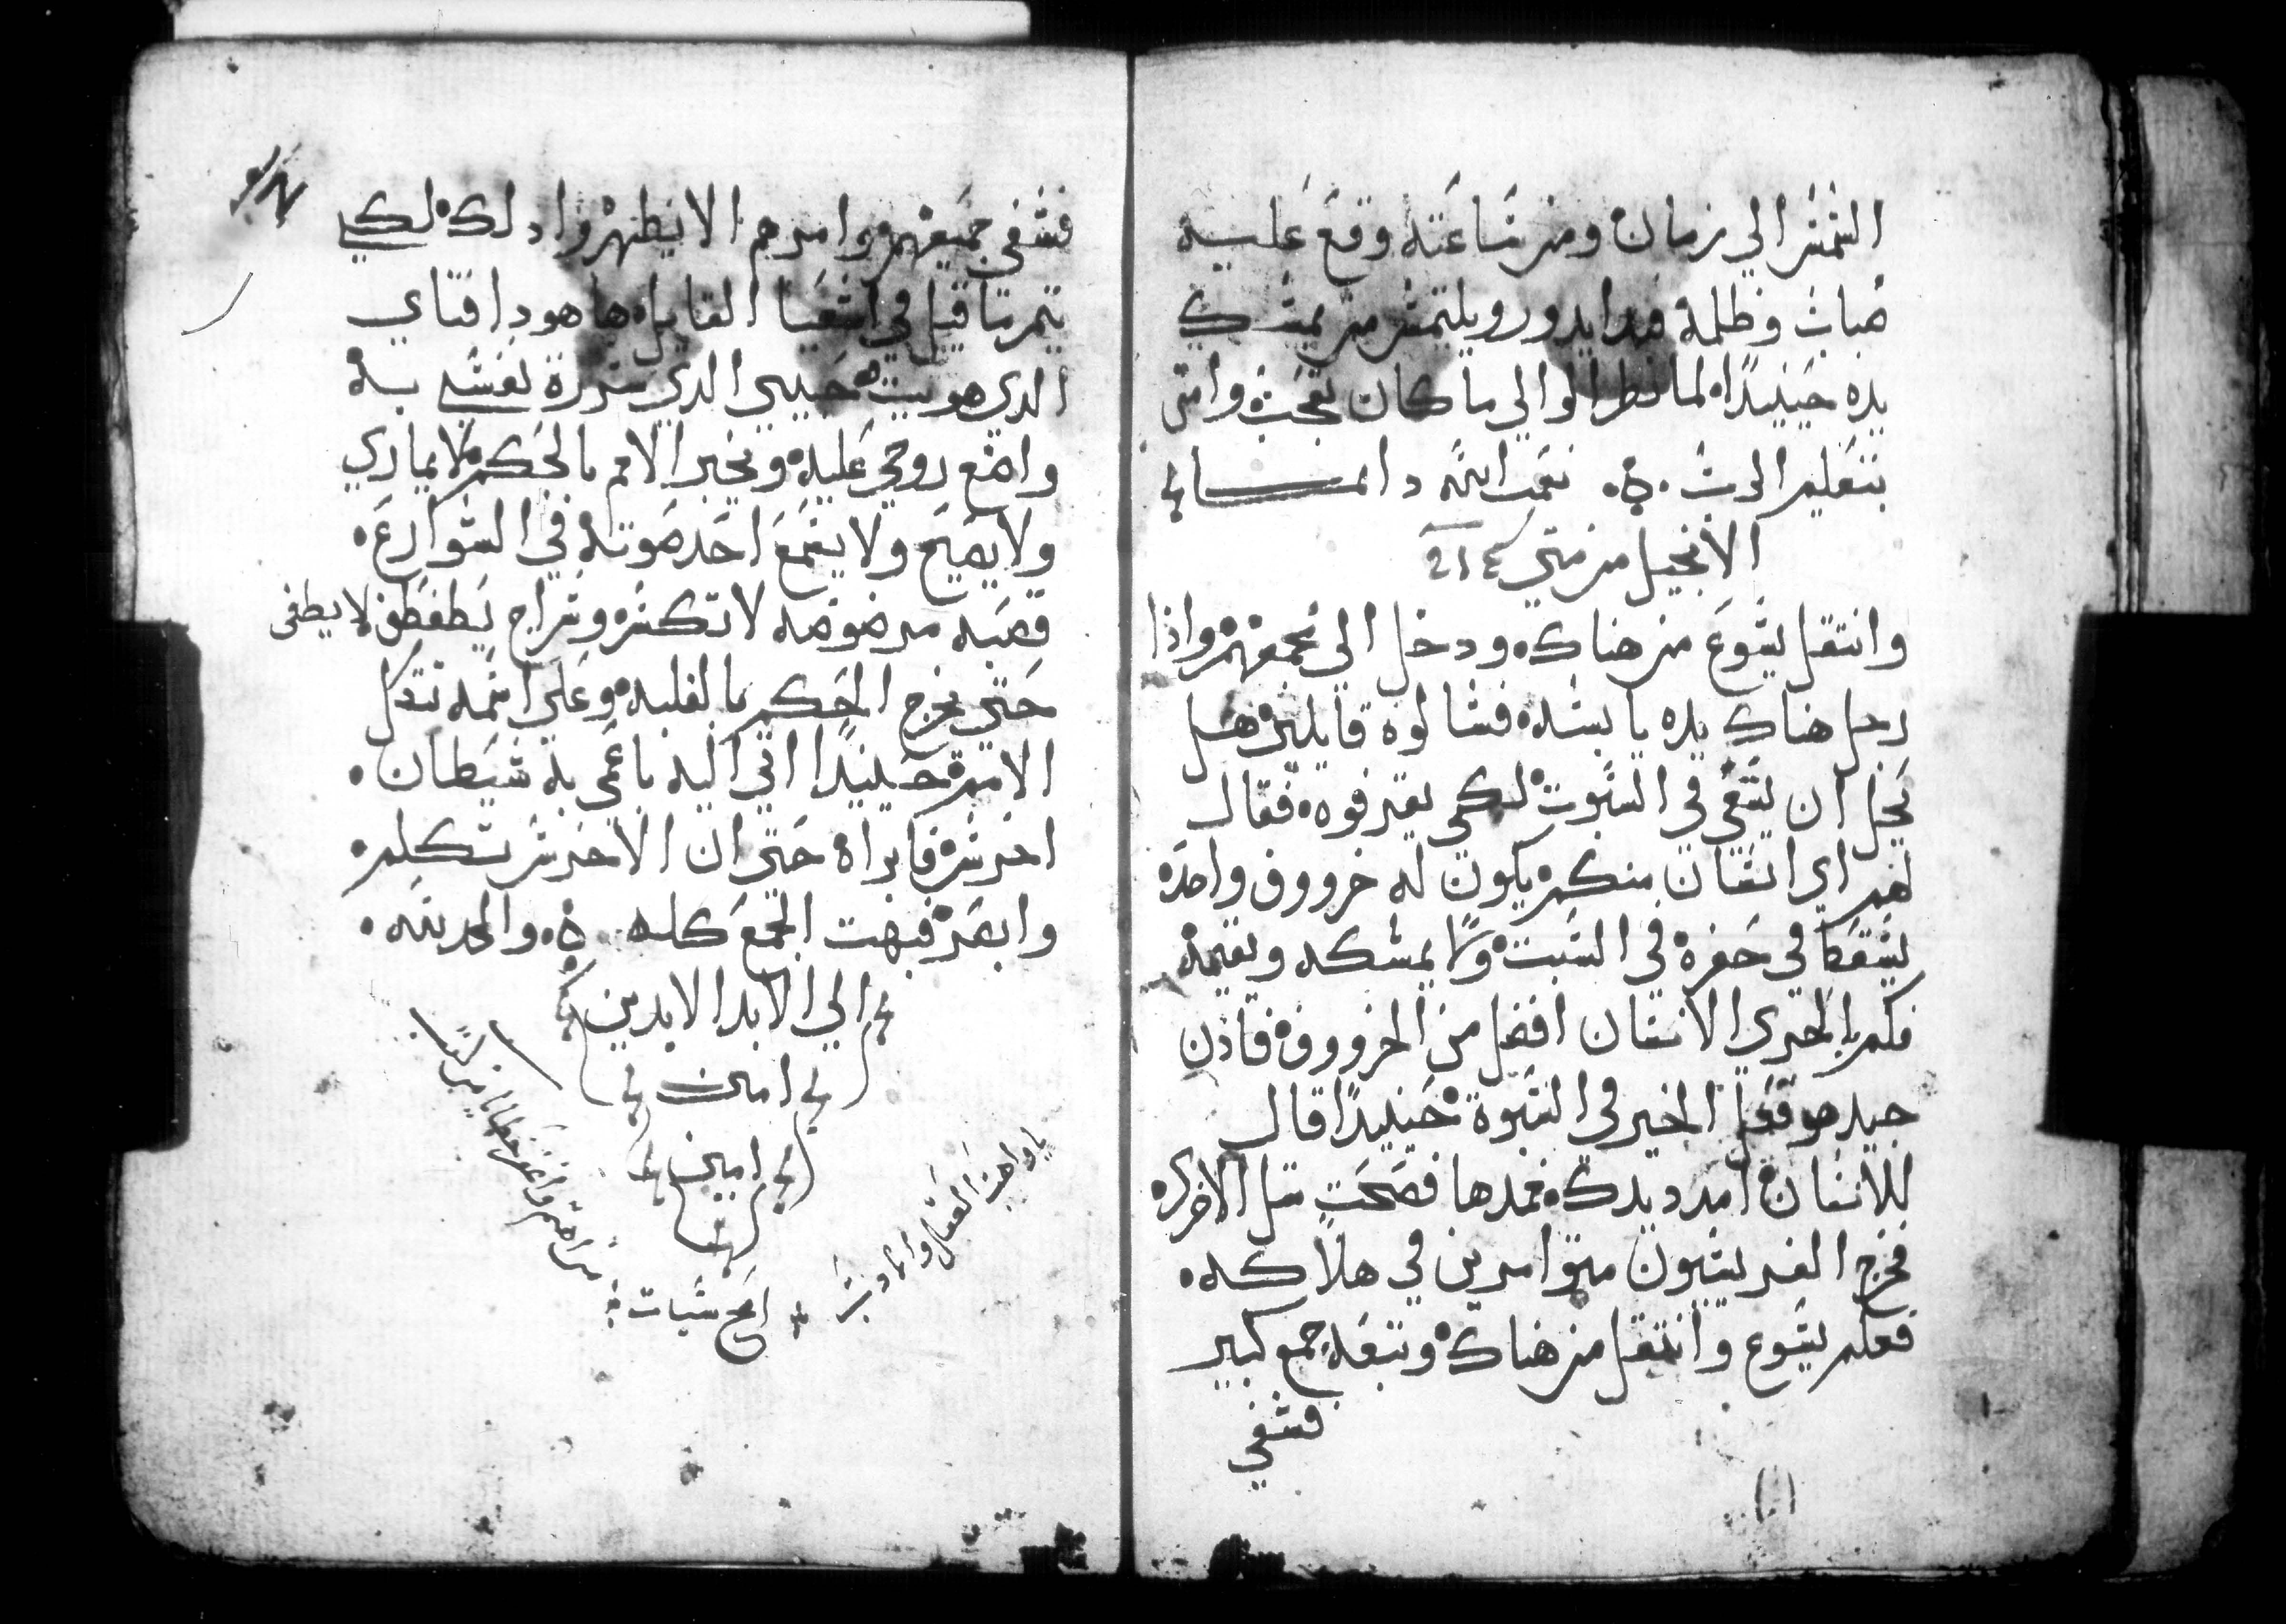 الشمش الي زمان ومن شاعته وقع عليه
ضباب وظلمة فبدا يدور ويلتمش من يمشك
يده حينيدًا لما نظر الوالي ما كان تعجب وامن
بتعليم الرب نعمت الله دايما
الانجيل من متي
وانتقل يشوع من هناك ودخل الي مجمعهم واذا
رجل هناك يده يابشه فشالوه قايلين هل
يحل ان يشفي في الشبوت لكي يقرفوه فقال
لهم اي انشان منكم يكون له خرووف واحده
يشقط في حفرة في الشبت ولا يمشكه ويقيمة
فكم بالحري الانشان افضل من الخرووف فاذن
جيد هو فعل الخير في الشبوة حينيدًا قال
للانشان امدد يدك فمدها فصحت متل الاخري
فخرج الفريشيون متوامرين في هلاكه
فعلم يشوع وانتقل من هناك وتبعه جمع كبير
فشفي
فشفي جميعهم وامرهم الا يظهروا دلك لكي
يتم ما قيل في اشعيا القايل ها هودا فتاي
الدي هويت حبيبي الدي شررة نفشي به
واضع روحي عليه ويخبر الامم بالحكم لا يماري
ولا يصيح ولا يشمع احد صوته في الشوارع
قصبه مرضوضه لا تكشر وشراج يطفطف لا يطفى
حتي يخرج الحكم بالغلبه وعلي اشمه تتكل
الامم حينيدًا اتي اليه باعمي به شيطان
اخرش فابراه حتي ان الاخرش تكلم
وابصر فبهت الجمع كله والمجد لله
الي الابد الابدين
امين
امين
يا واهب العقل
امح شيات
واغفر خطايا من كتب